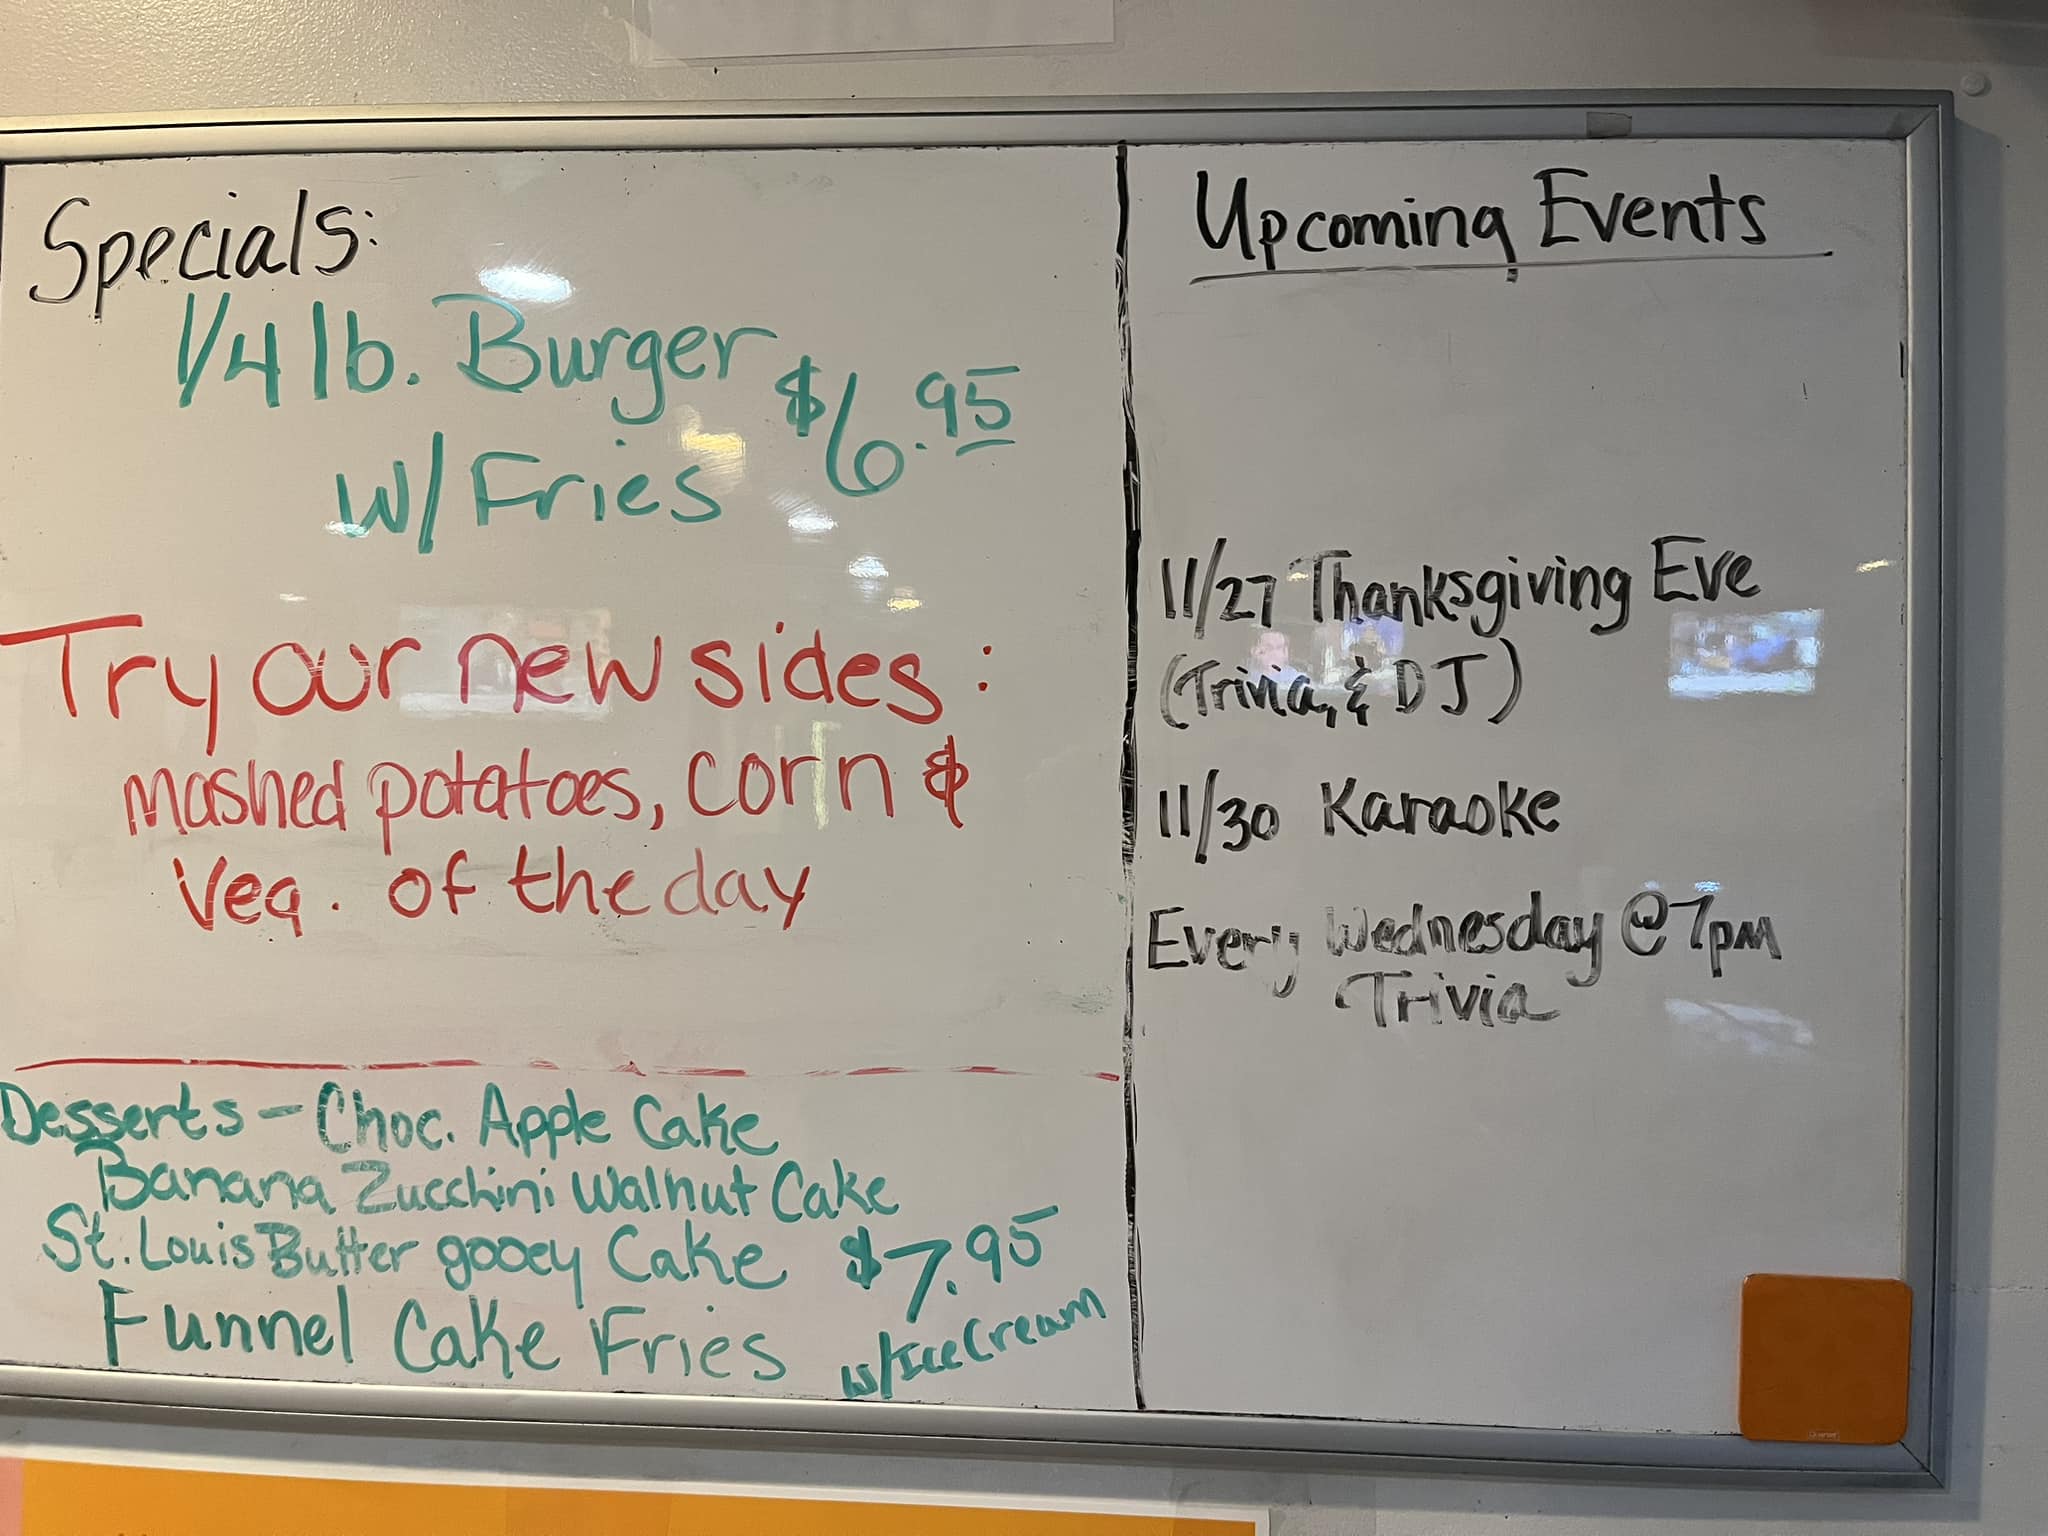 Specials:
1/4 lb. Burger $6.95
w/ Fries
Try our new sides:
mashed potatoes, corn &
Veg. of the day
Desserts - Choc. Apple Cake
Banana Zucchini Walnut Cake
St. Louis Butter gooey Cake $7.95
Funnel Cake Fries w/Ice Cream
Upcoming Events
11/27 Thanksgiving Eve
(Trivia, & DJ)
11/30 Karaoke
Every Wednesday @ 7pm
Trivia
Quartet